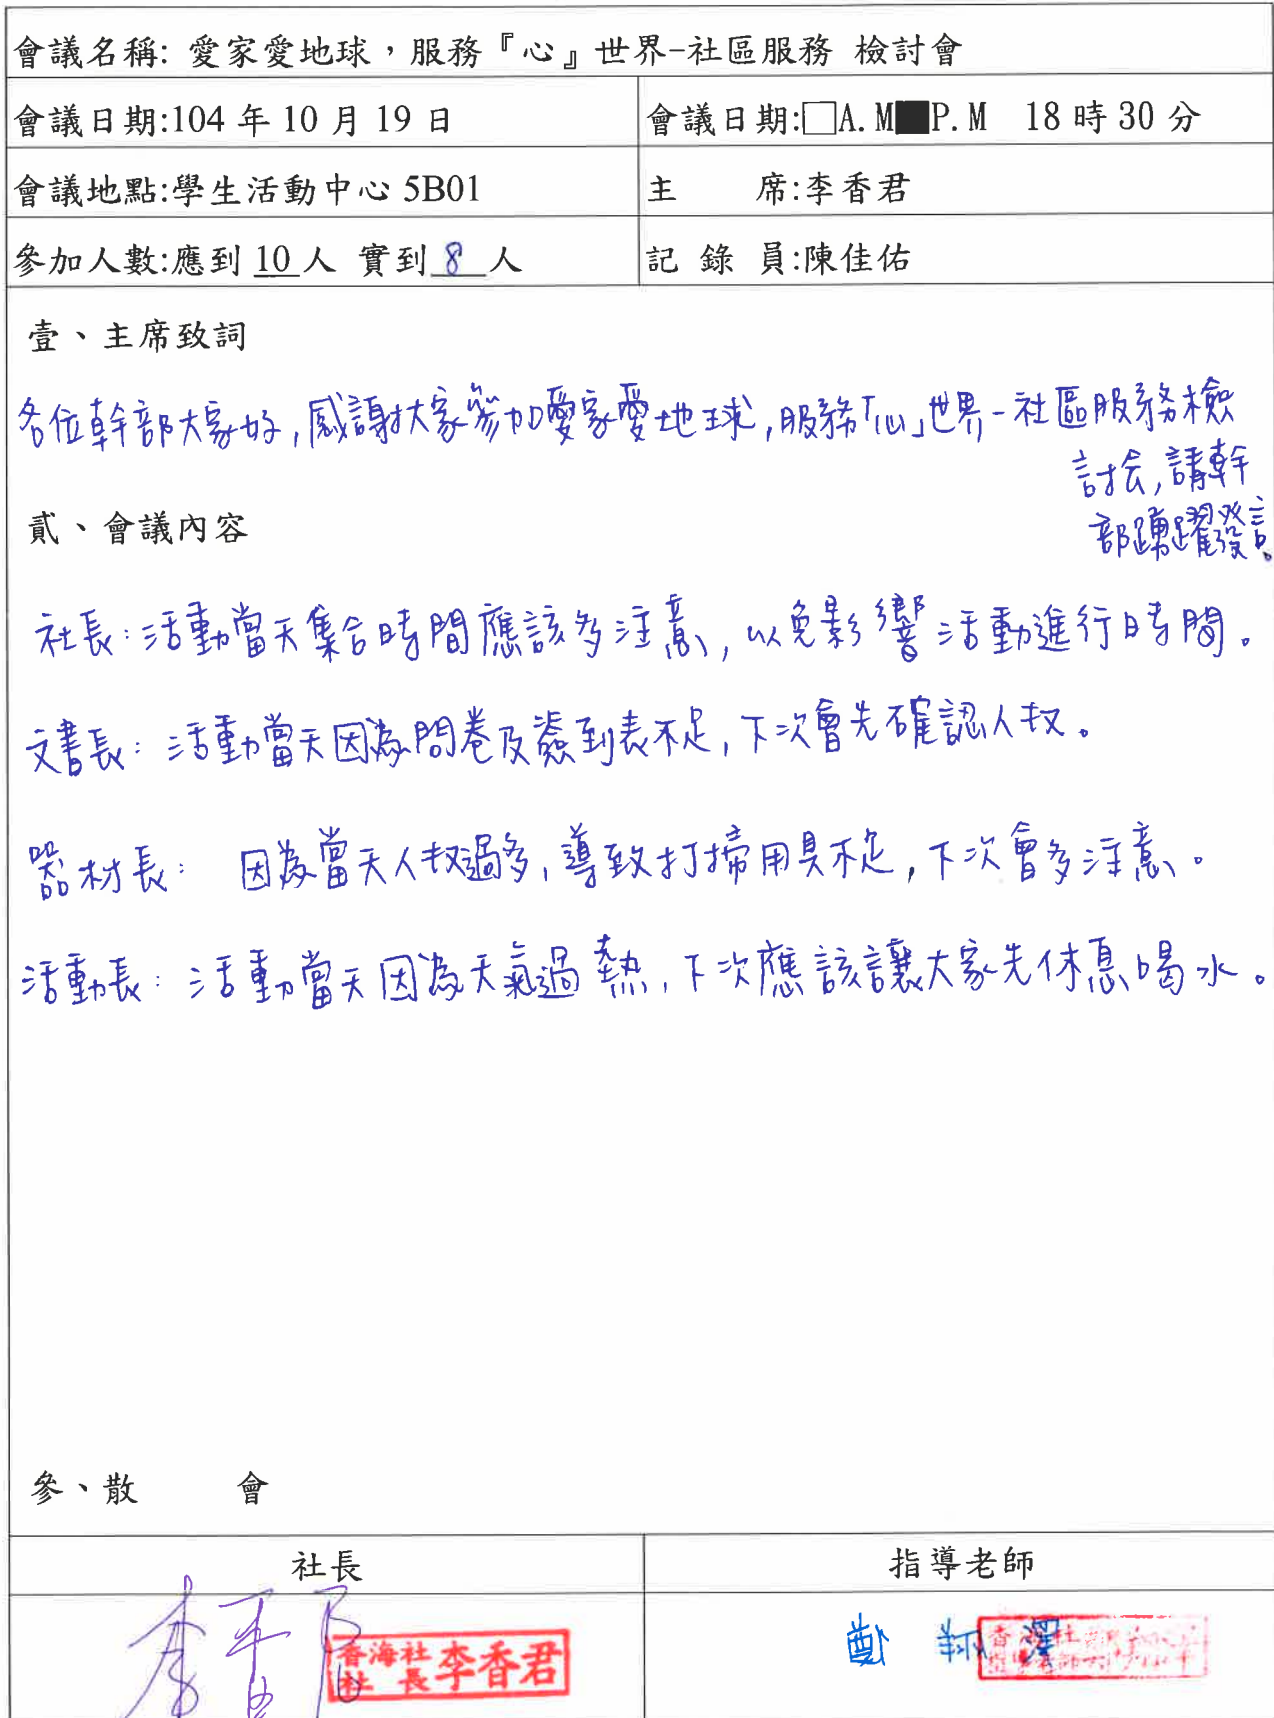 會議名稱: 愛家愛地球，服務『心』世界-社區服務 檢討會
會議日期:104 年 10 月 19 日
會議日期:□A.M■P.M 18 時 30 分
會議地點:學生活動中心 5B01
主 席:李香君
參加人數:應到 10 人 實到 8 人
記 錄 員:陳佳佑
壹、主席致詞
各位幹部大家好,感謝大家參加愛家愛地球,服務「心」世界-社區服務檢
討会,請幹
部踴躍發言。
貳、會議內容
社長:活動當天集合時間應該多注意,以免影響活動進行時間。
文書長:活動當天因為問卷及簽到表不足,下次會先確認人数。
器材長: 因為當天人数過多,導致打掃用具不足,下次會多注意。
活動長:活動當天因為天氣過熱,下次應該讓大家先休息喝水。
參、散 會
社長
指導老師
香海社
社長
李香君
鄭翔澤